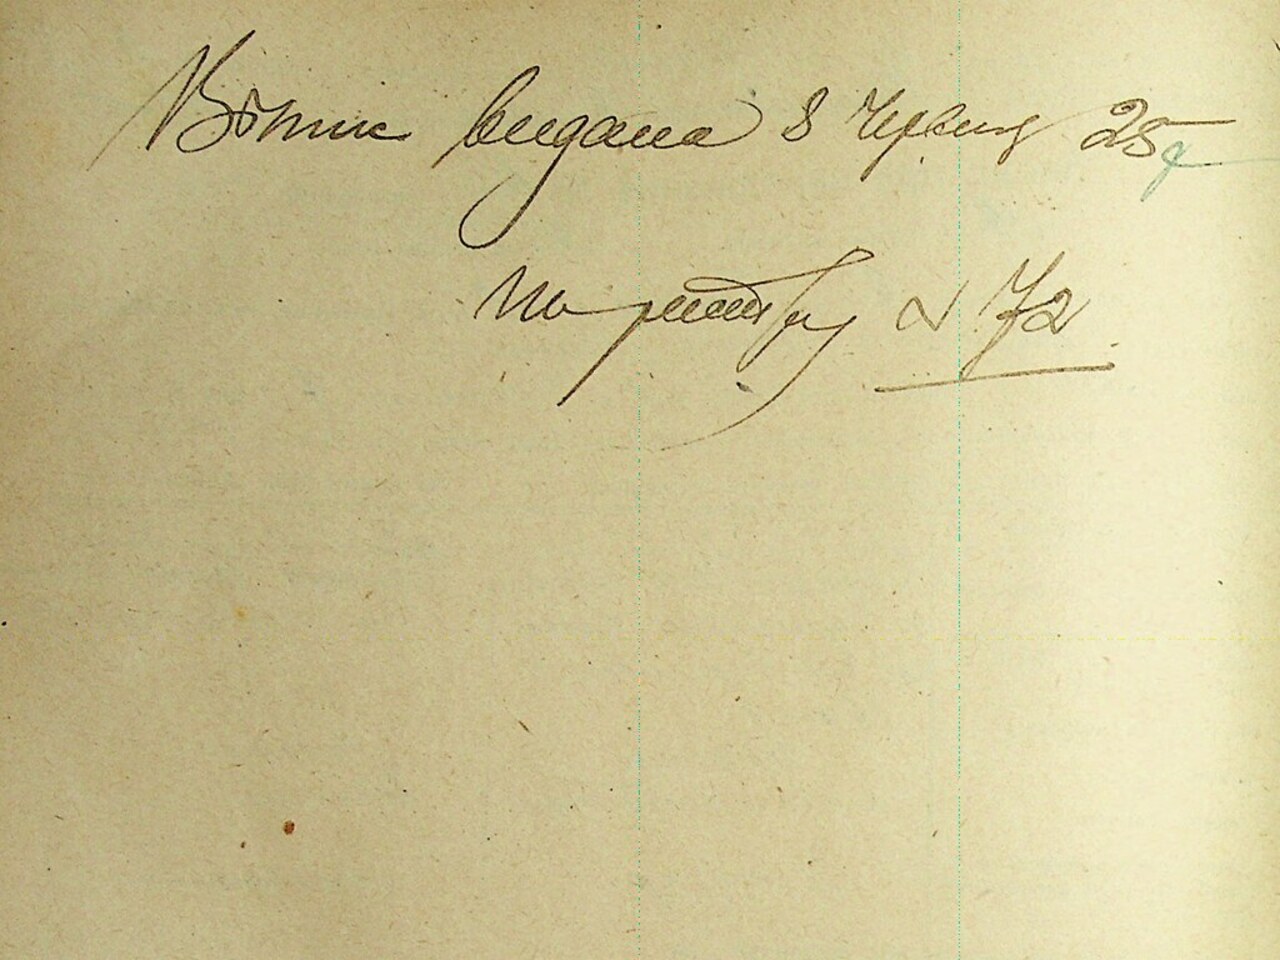 Вопис видана 8 Червня 25 р
По реєстру № 72